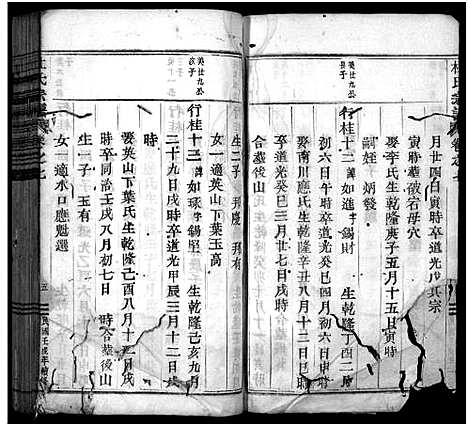 林氏宗譜 卷之七
月廿四日寅時卒道光 兵宗
寅聯墓破宕母穴
娶李氏生乾隆庚子五月十五日寅時
嗣姪 炳發
行桂十二 如進 錫財 生乾隆丁酉二月
初六日午時卒道光癸巳四月初三日戌時
娶南川應氏生乾隆辛丑八月十二日巳時
卒道光癸巳三月廿七日戌時
合墓後山
英仕九公
長子
生二子 拜慶 拜有
女一適英山下葉玉高
行桂十三 如琢 錫照 生乾隆己亥九月
二十九日戌時卒道光甲辰三月十二日戌
時
娶英山下葉氏生乾隆己酉八月十二日戌
時卒同治壬戌八月初七日 時合墓後山
生一子 玉有
女一適水口應魁選
英仕九公
次子
五
民國壬戌年續修